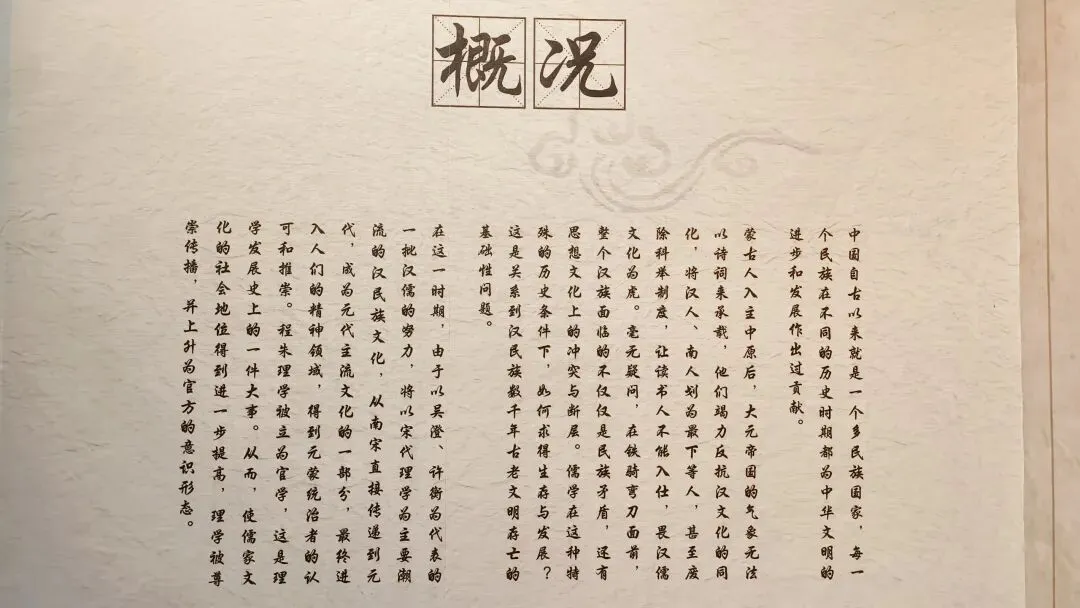 概况
中国自古以来就是一个多民族国家，每一
个民族在不同的历史时期都为中华文明的
进步和发展作出过贡献。
蒙古人入主中原后，大元帝国的气象无法
以诗词来承载，他们竭力反抗汉文化的同
化，将汉人、南人划为最下等人，甚至废
除科举制度，让读书人不能入仕，畏汉儒
文化为虎。毫无疑问，在铁骑弯刀面前，
整个汉族面临的不仅仅是民族矛盾，还有
思想文化上的冲突与断层。儒学在这种特
殊的历史条件下，如何求得生存与发展？
这是关系到汉民族数千年古老文明存亡的
基础性问题。
在这一时期，由于以吴澄、许衡为代表的
一批汉儒的努力，将以宋代理学为主要潮
流的汉民族文化，从南宋直接传递到元
代，成为元代主流文化的一部分，最终进
入人们的精神领域，得到元蒙统治者的认
可和推崇。程朱理学被立为官学，这是理
学发展史上的一件大事。从而，使儒家文
化的社会地位得到进一步提高，理学被尊
崇传播，并上升为官方的意识形态。